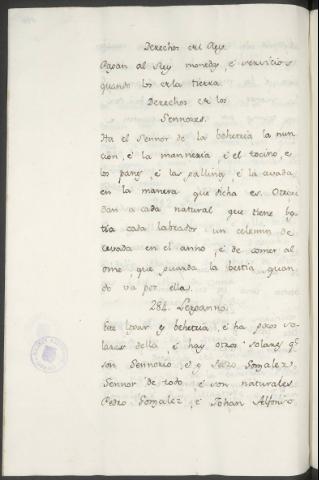 Derechos del Rey.
Pagan al Rey monedas, é servicios
quando los en la tierra
Derechos de los
Sennores.
Ha el Sennor de la behetria la nun
cion, é la manneria, é el tocino, e
los panes, é las gallina, é la cevada
en la manera que dicha es. Otrosi
dan a cada natural que tiene bes
tia cada labrador un celemin de
cevada en el anno, é de comer al
ome, que guarda la bestia, quan
do va por ella.
284.
Este logar es behetria, é ha pocos so
lares della, é hay otros solares q.e
son Sennorio, é es Pedro Gonzalez,
Sennor de todo, é son naturales
Pedro Gonzalez, é Johan Alfonso